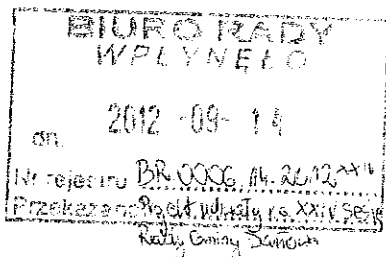 BIURO RADY
WPŁYNĘŁO
dn. 2012 -09- 14
Nr rejestru BR.0006.14.2012
Przekazano Projekt uchwały XXIV sesja
Rady Gminy